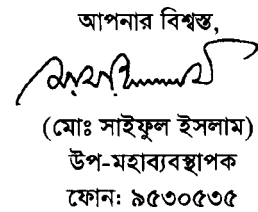 আপনার বিশ্বস্ত,
(মোঃ সাইফুল ইসলাম)
উপ-মহাব্যবস্থাপক
ফোন: ৯৫৩০৫৩৫